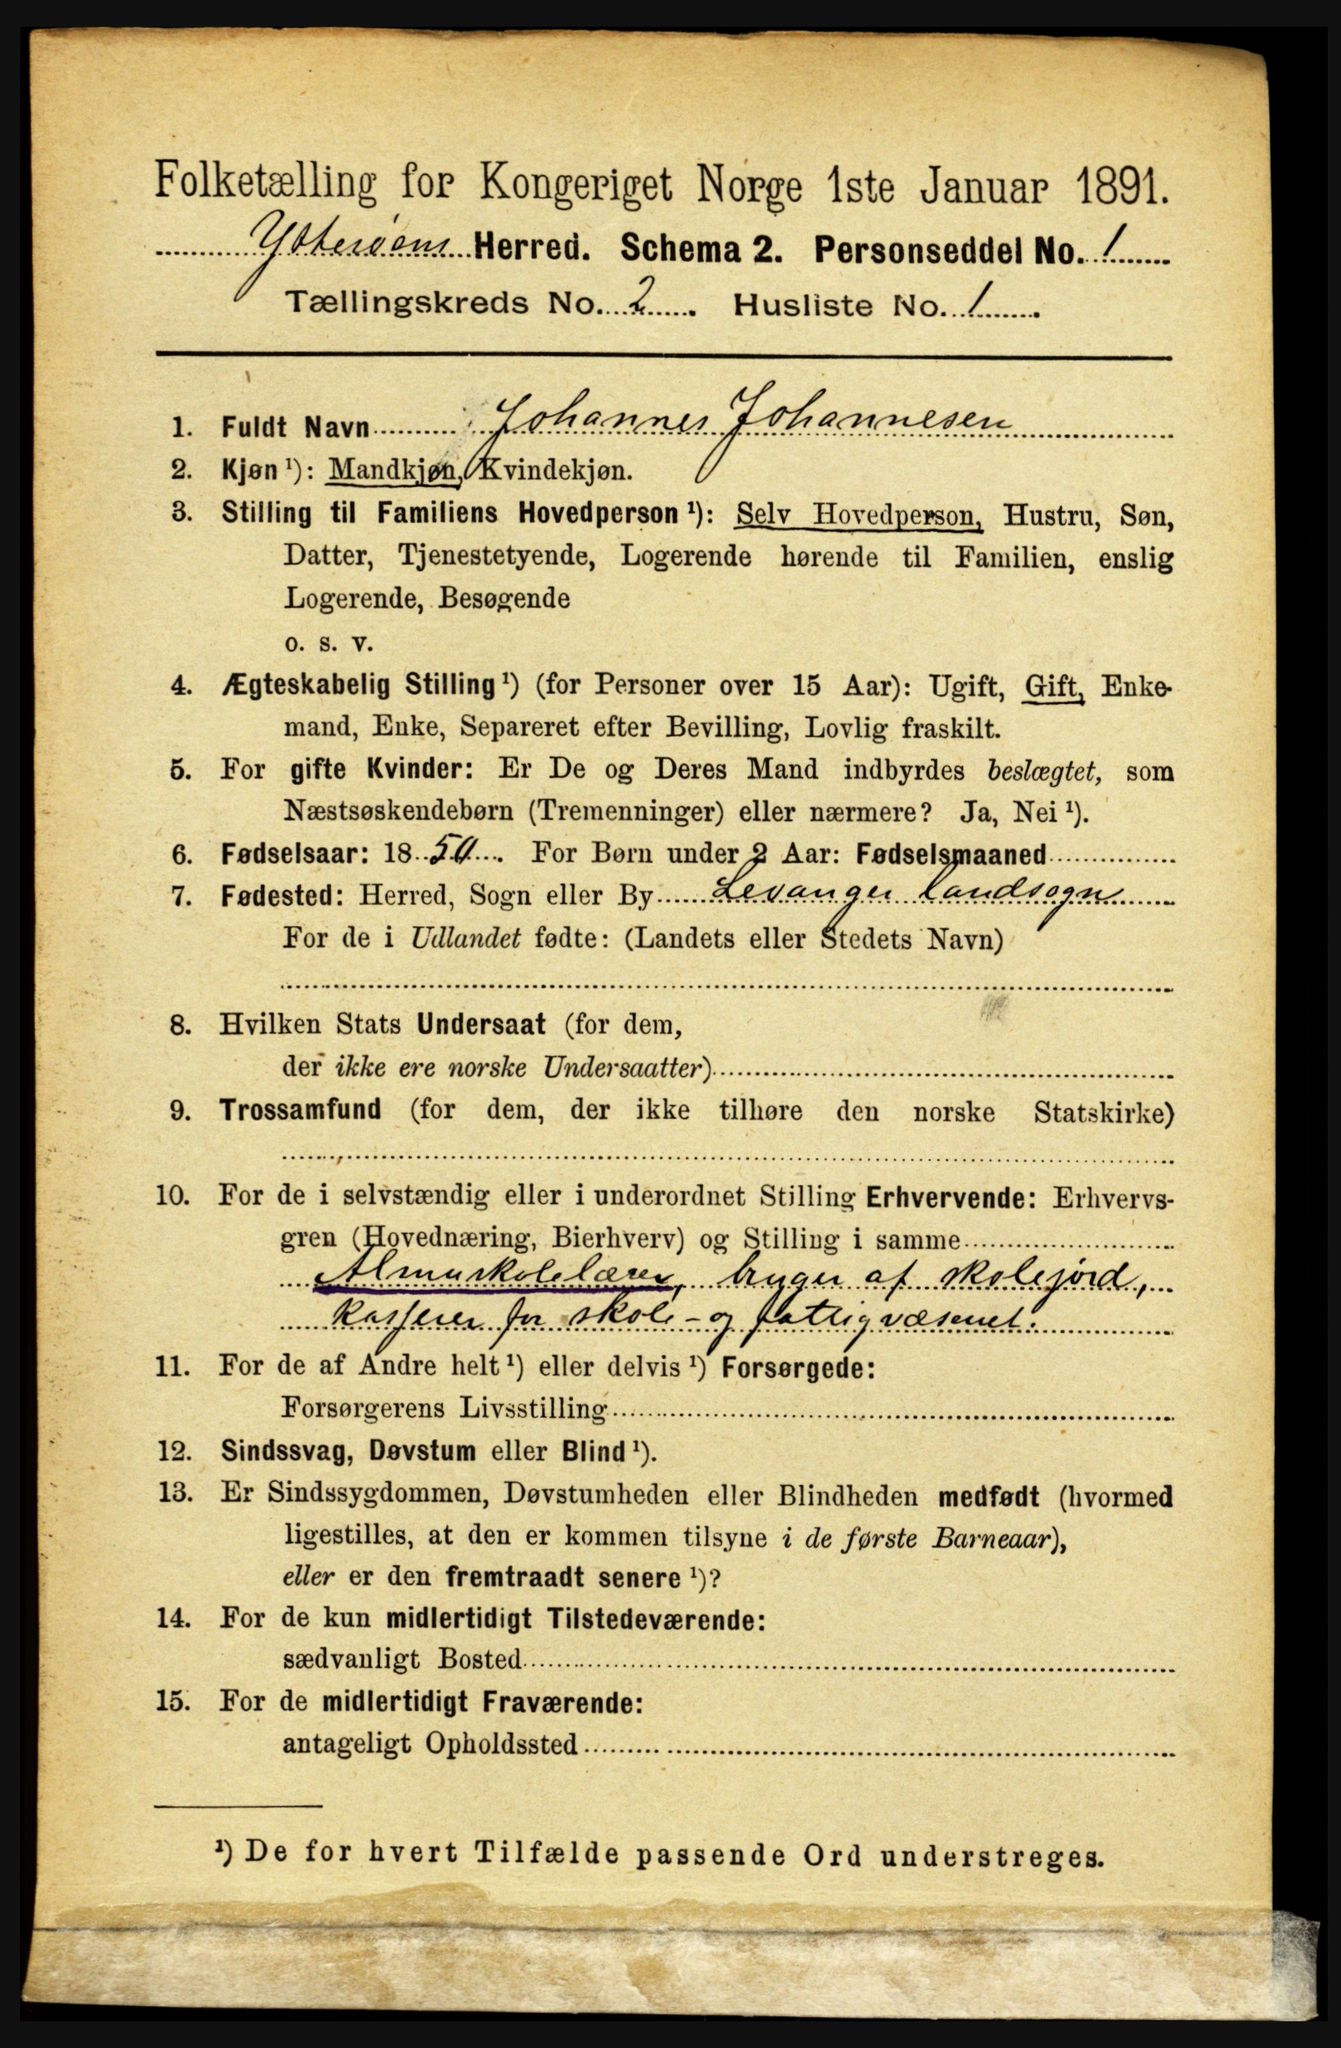 Folketælling for Kongeriget Norge 1ste Januar 1891.
Ytterøens Herred. Schema 2. Personseddel No. 1
Tællingskreds No. 2. Husliste No. 1.
1. Fuldt Navn Johannes Johannesen
2. Kjøn ¹): Mandkjøn, Kvindekjøn.
3. Stilling til Familiens Hovedperson ¹): Selv Hovedperson, Hustru, Søn,
Datter, Tjenestetyende, Logerende hørende til Familien, enslig
Logerende, Besøgende
o. s. v.
4. Ægteskabelig Stilling ¹) (for Personer over 15 Aar): Ugift, Gift, Enke-
mand, Enke, Separeret efter Bevilling, Lovlig fraskilt.
5. For gifte Kvinder: Er De og Deres Mand indbyrdes beslægtet, som
Næstsøskendebørn (Tremenninger) eller nærmere? Ja, Nei ¹).
6. Fødselsaar: 18 . For Børn under 2 Aar: Fødselsmaaned
7. Fødested: Herred, Sogn eller By Levanger landsogn
For de i Udlandet fødte: (Landets eller Stedets Navn)
8. Hvilken Stats Undersaat (for dem,
der ikke ere norske Undersaatter)
9. Trossamfund (for dem, der ikke tilhøre den norske Statskirke)
10. For de i selvstændig eller i underordnet Stilling Erhvervende: Erhvervs-
gren (Hovednæring, Bierhverv) og Stilling i samme
Almuskolelærer, bruger af skolejord,
kasserer for skole- og fattigvæsenet.
11. For de af Andre helt ¹) eller delvis ¹) Forsørgede:
Forsørgerens Livsstilling
12. Sindssvag, Døvstum eller Blind ¹).
13. Er Sindssygdommen, Døvstumheden eller Blindheden medfødt (hvormed
ligestilles, at den er kommen tilsyne i de første Barneaar),
eller er den fremtraadt senere ¹)?
14. For de kun midlertidigt Tilstedeværende:
sædvanligt Bosted
15. For de midlertidigt Fraværende:
antageligt Opholdssted
¹) De for hvert Tilfælde passende Ord understreges.